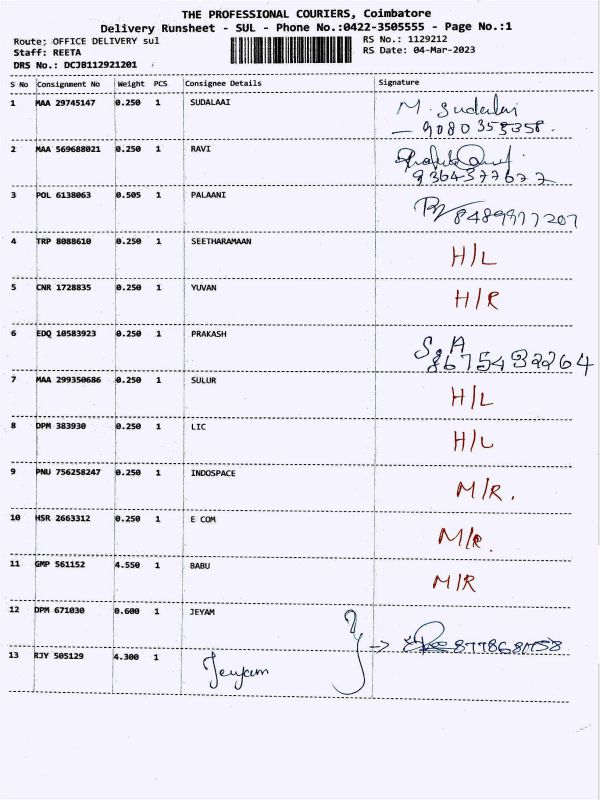 THE PROFESSIONAL COURIERS, Coimbatore
Delivery Runsheet - SUL - Phone No.:0422-3505555 - Page No.:1
Route; OFFICE DELIVERY sul
RS No.: 1129212
Staff: REETA
RS Date: 04-Mar-2023
DRS No.: DCJB112921201
S No Consignment No Weight PCS Consignee Details Signature
1 MAA 29745147 0.250 1 SUDALAAI M. Sudalai
- 9080353358.
2 MAA 569688021 0.250 1 RAVI
9364377677
3 POL 6138063 0.505 1 PALAANI 8489977207
4 TRP 8088610 0.250 1 SEETHARAMAAN H/L
5 CNR 1728835 0.250 1 YUVAN H/R
6 EDQ 10583923 0.250 1 PRAKASH S. A
8675432264
7 MAA 299350686 0.250 1 SULUR H/L
8 DPM 383930 0.250 1 LIC H/L
9 PNU 756258247 0.250 1 INDOSPACE M/R.
10 HSR 2663312 0.250 1 E COM M/R.
11 GMP 561152 4.550 1 BABU M/R
12 DPM 671030 0.600 1 JEYAM
13 RJY 505129 4.300 1 Jeyam